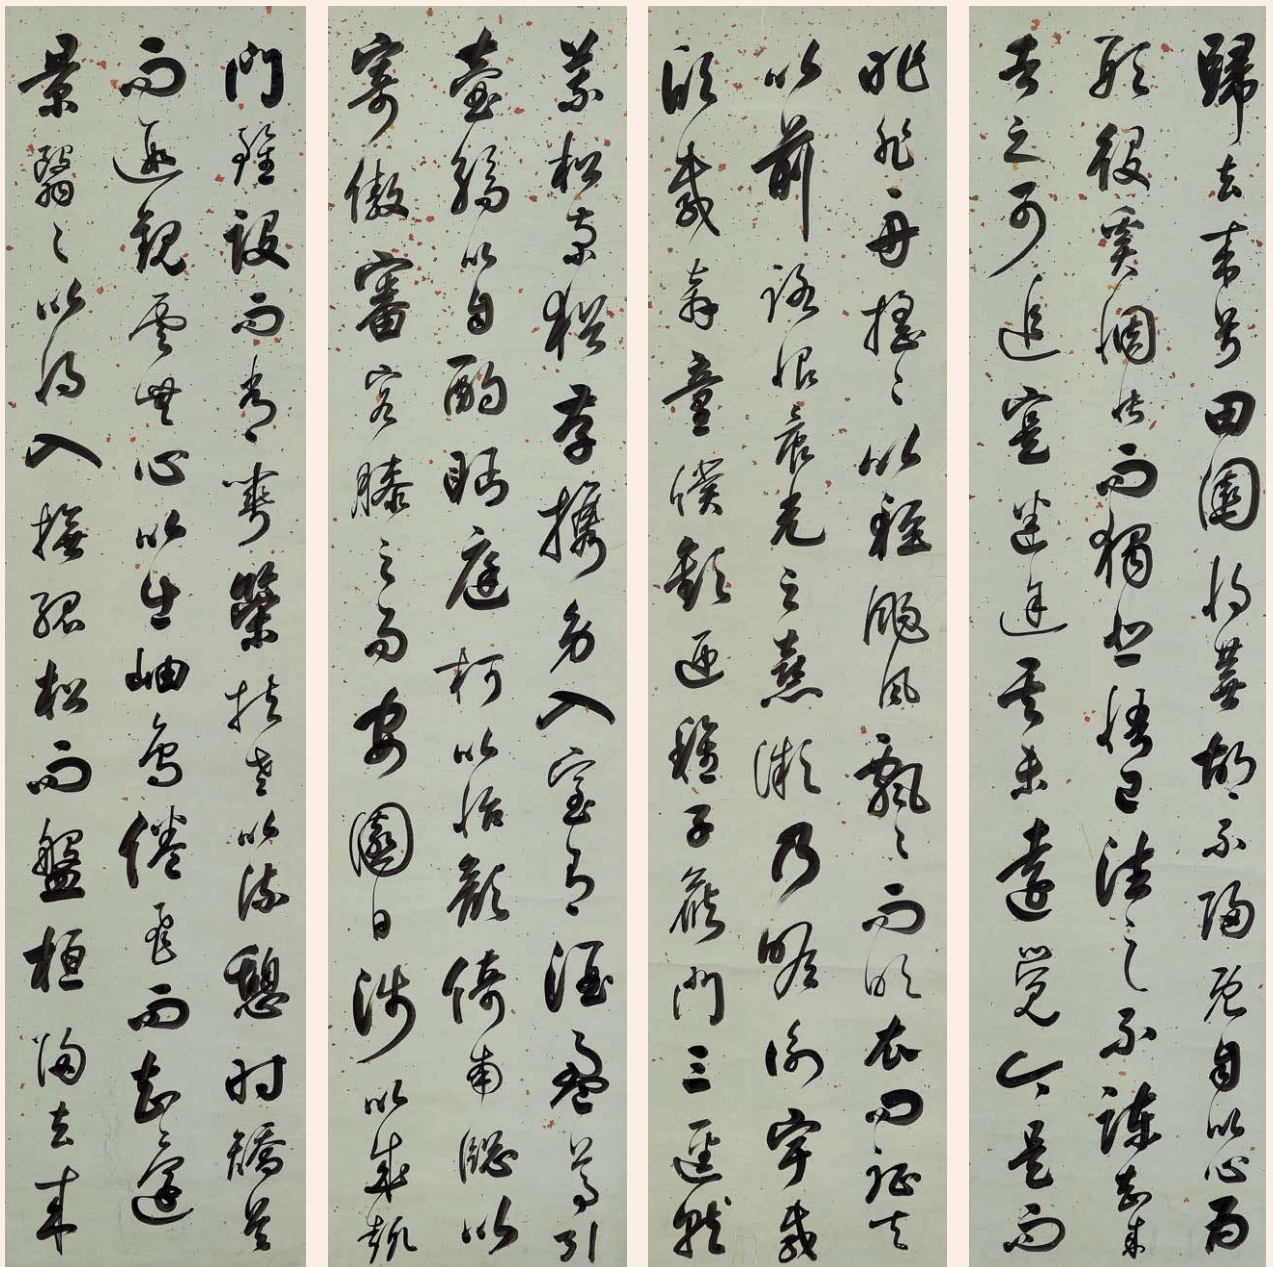 歸去來兮田園將蕪胡不歸既自以心為
形役奚惆悵而獨悲悟已往之不諫知來
者之可追寔迷途其未遠覺今是而
昨非舟搖搖以輕颺風飄飄而吹衣問征夫
以前路恨晨光之熹微乃瞻衡宇載
欣載奔童僕歡迎稚子候門三逕就
荒松菊猶存攜幼入室有酒盈尊引
壺觴以自酌眄庭柯以怡顏倚南窗以
寄傲審容膝之易安園日涉以成趣
門雖設而常關策扶老以流憩時矯首
而遐觀雲無心以出岫鳥倦飛而知還
景翳翳以將入撫孤松而盤桓歸去來